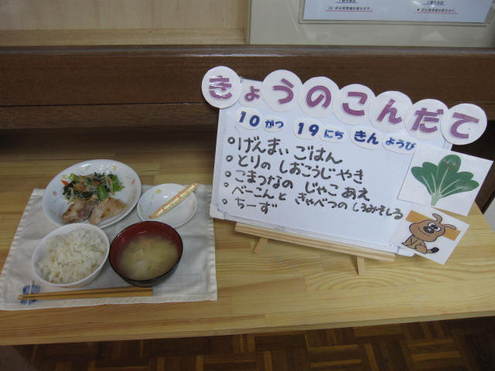 きょうのこんだて
10 がつ 19 にち きん ようび
○げんまい ごはん
○とりの しおこうじやき
○こまつなの じゃこ あえ
○べーこんと きゃべつの しるみそしる
○ちーず